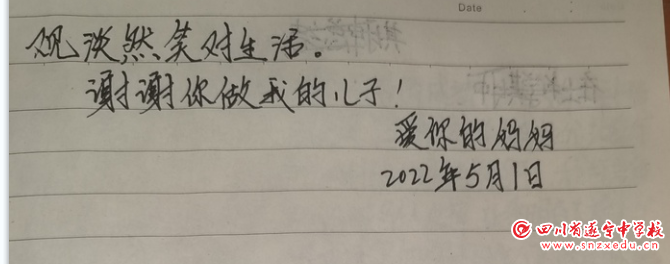 Date
观淡然笑对生活。
谢谢你做我的儿子！
爱你的妈妈
2022年5月1日
四川省遂宁中学校
www.snzxedu.cn